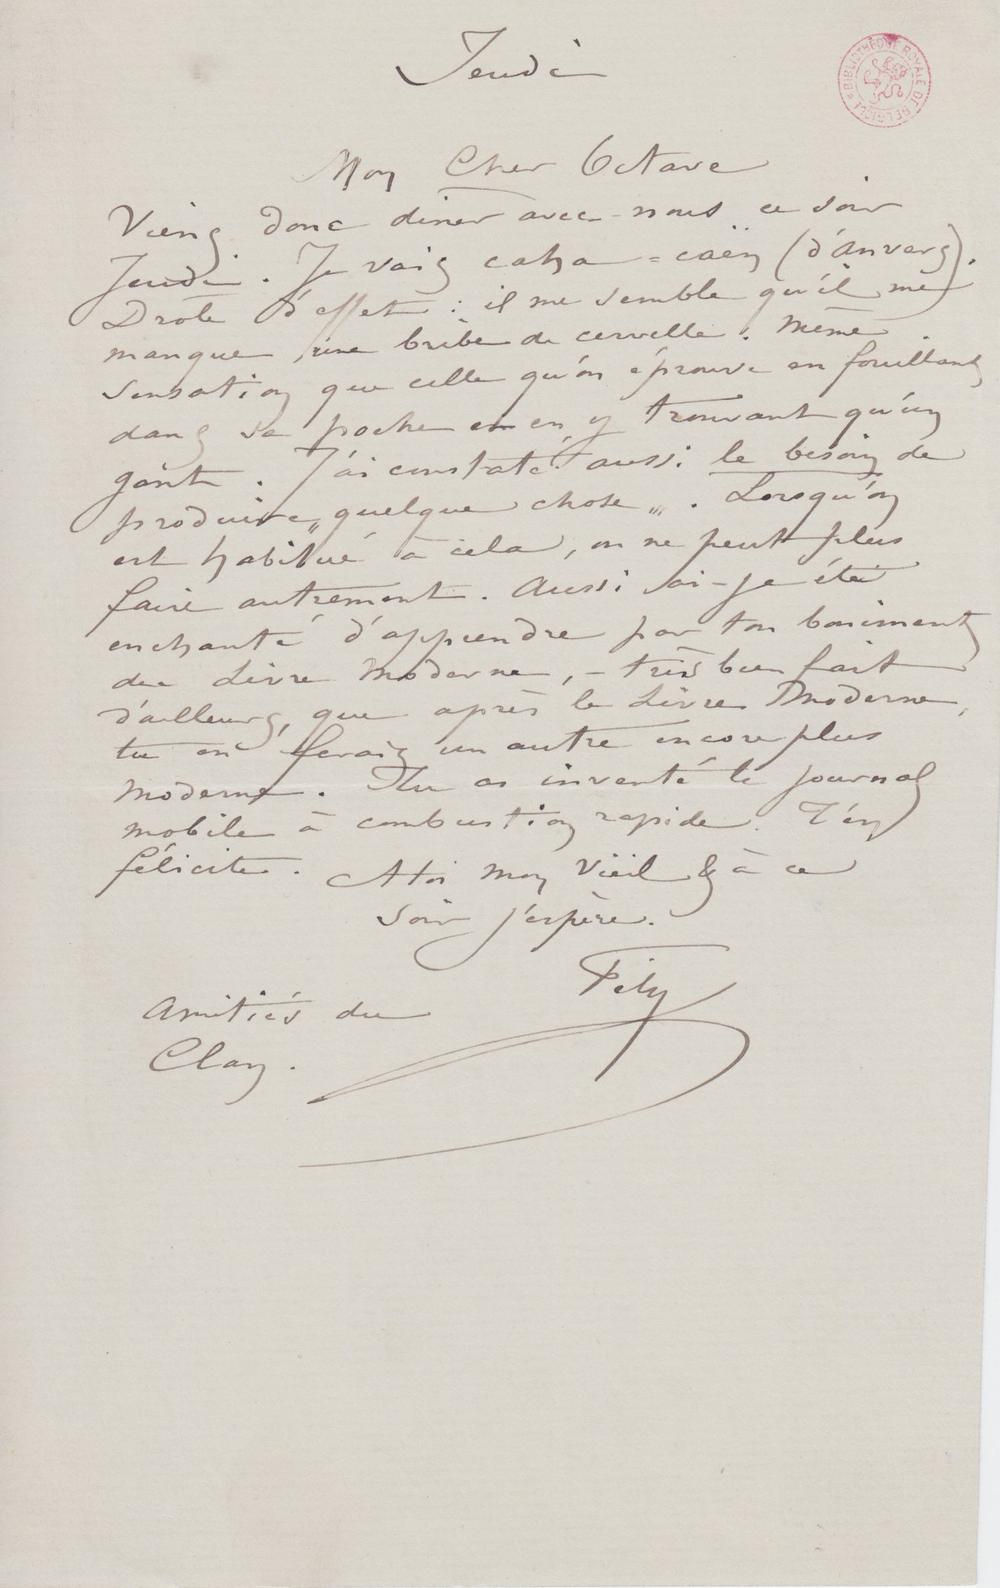 Jeudi
BIBLIOTHÈQUE ROYALE DE BELGIQUE
Mon Cher Octave
Viens donc diner avec nous ce soir
Jeudi. Je vais caha-caën (d'Anvers).
Drole d'effet : il me semble qu'il me
manque une bribe de cervelle. Même
sensation que celle qu'on éprouve en fouillant
dans sa poche et en y trouvant qu'un
gant. J'ai constaté aussi le besoin de
produire „quelque chose„. Lorsqu'on
est habitué à cela, on ne peut plus
faire autrement. Aussi ai-je été
enchanté d'apprendre par ton boniment
du Livre Moderne, – très bien fait
d'ailleurs, que après le Livre Moderne,
tu en ferais un autre encore plus
moderne. Tu as inventé le journal
mobile à combustion rapide. T'en
félicite. A toi mon vieil & à ce
soir j'espère.
Fély
Amitiés du
Clan.